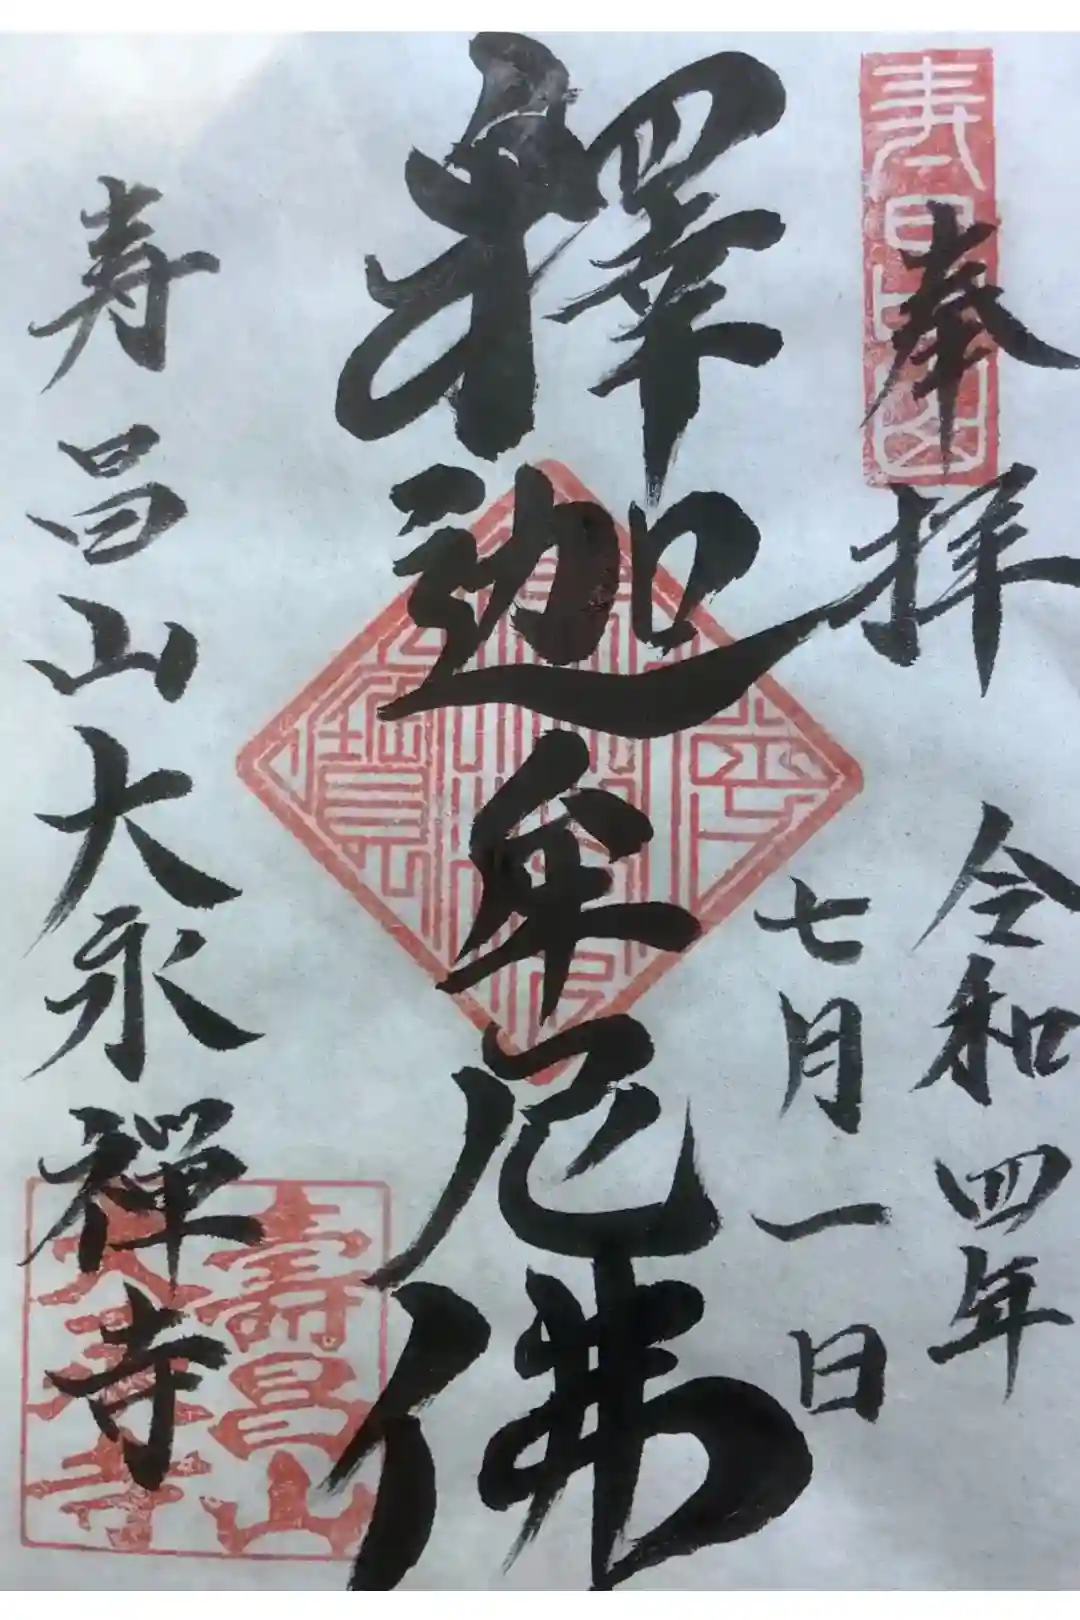 奉拝
令和四年
七月一日
釋迦牟尼佛
寿昌山大永禅寺
壽昌山
大永寺